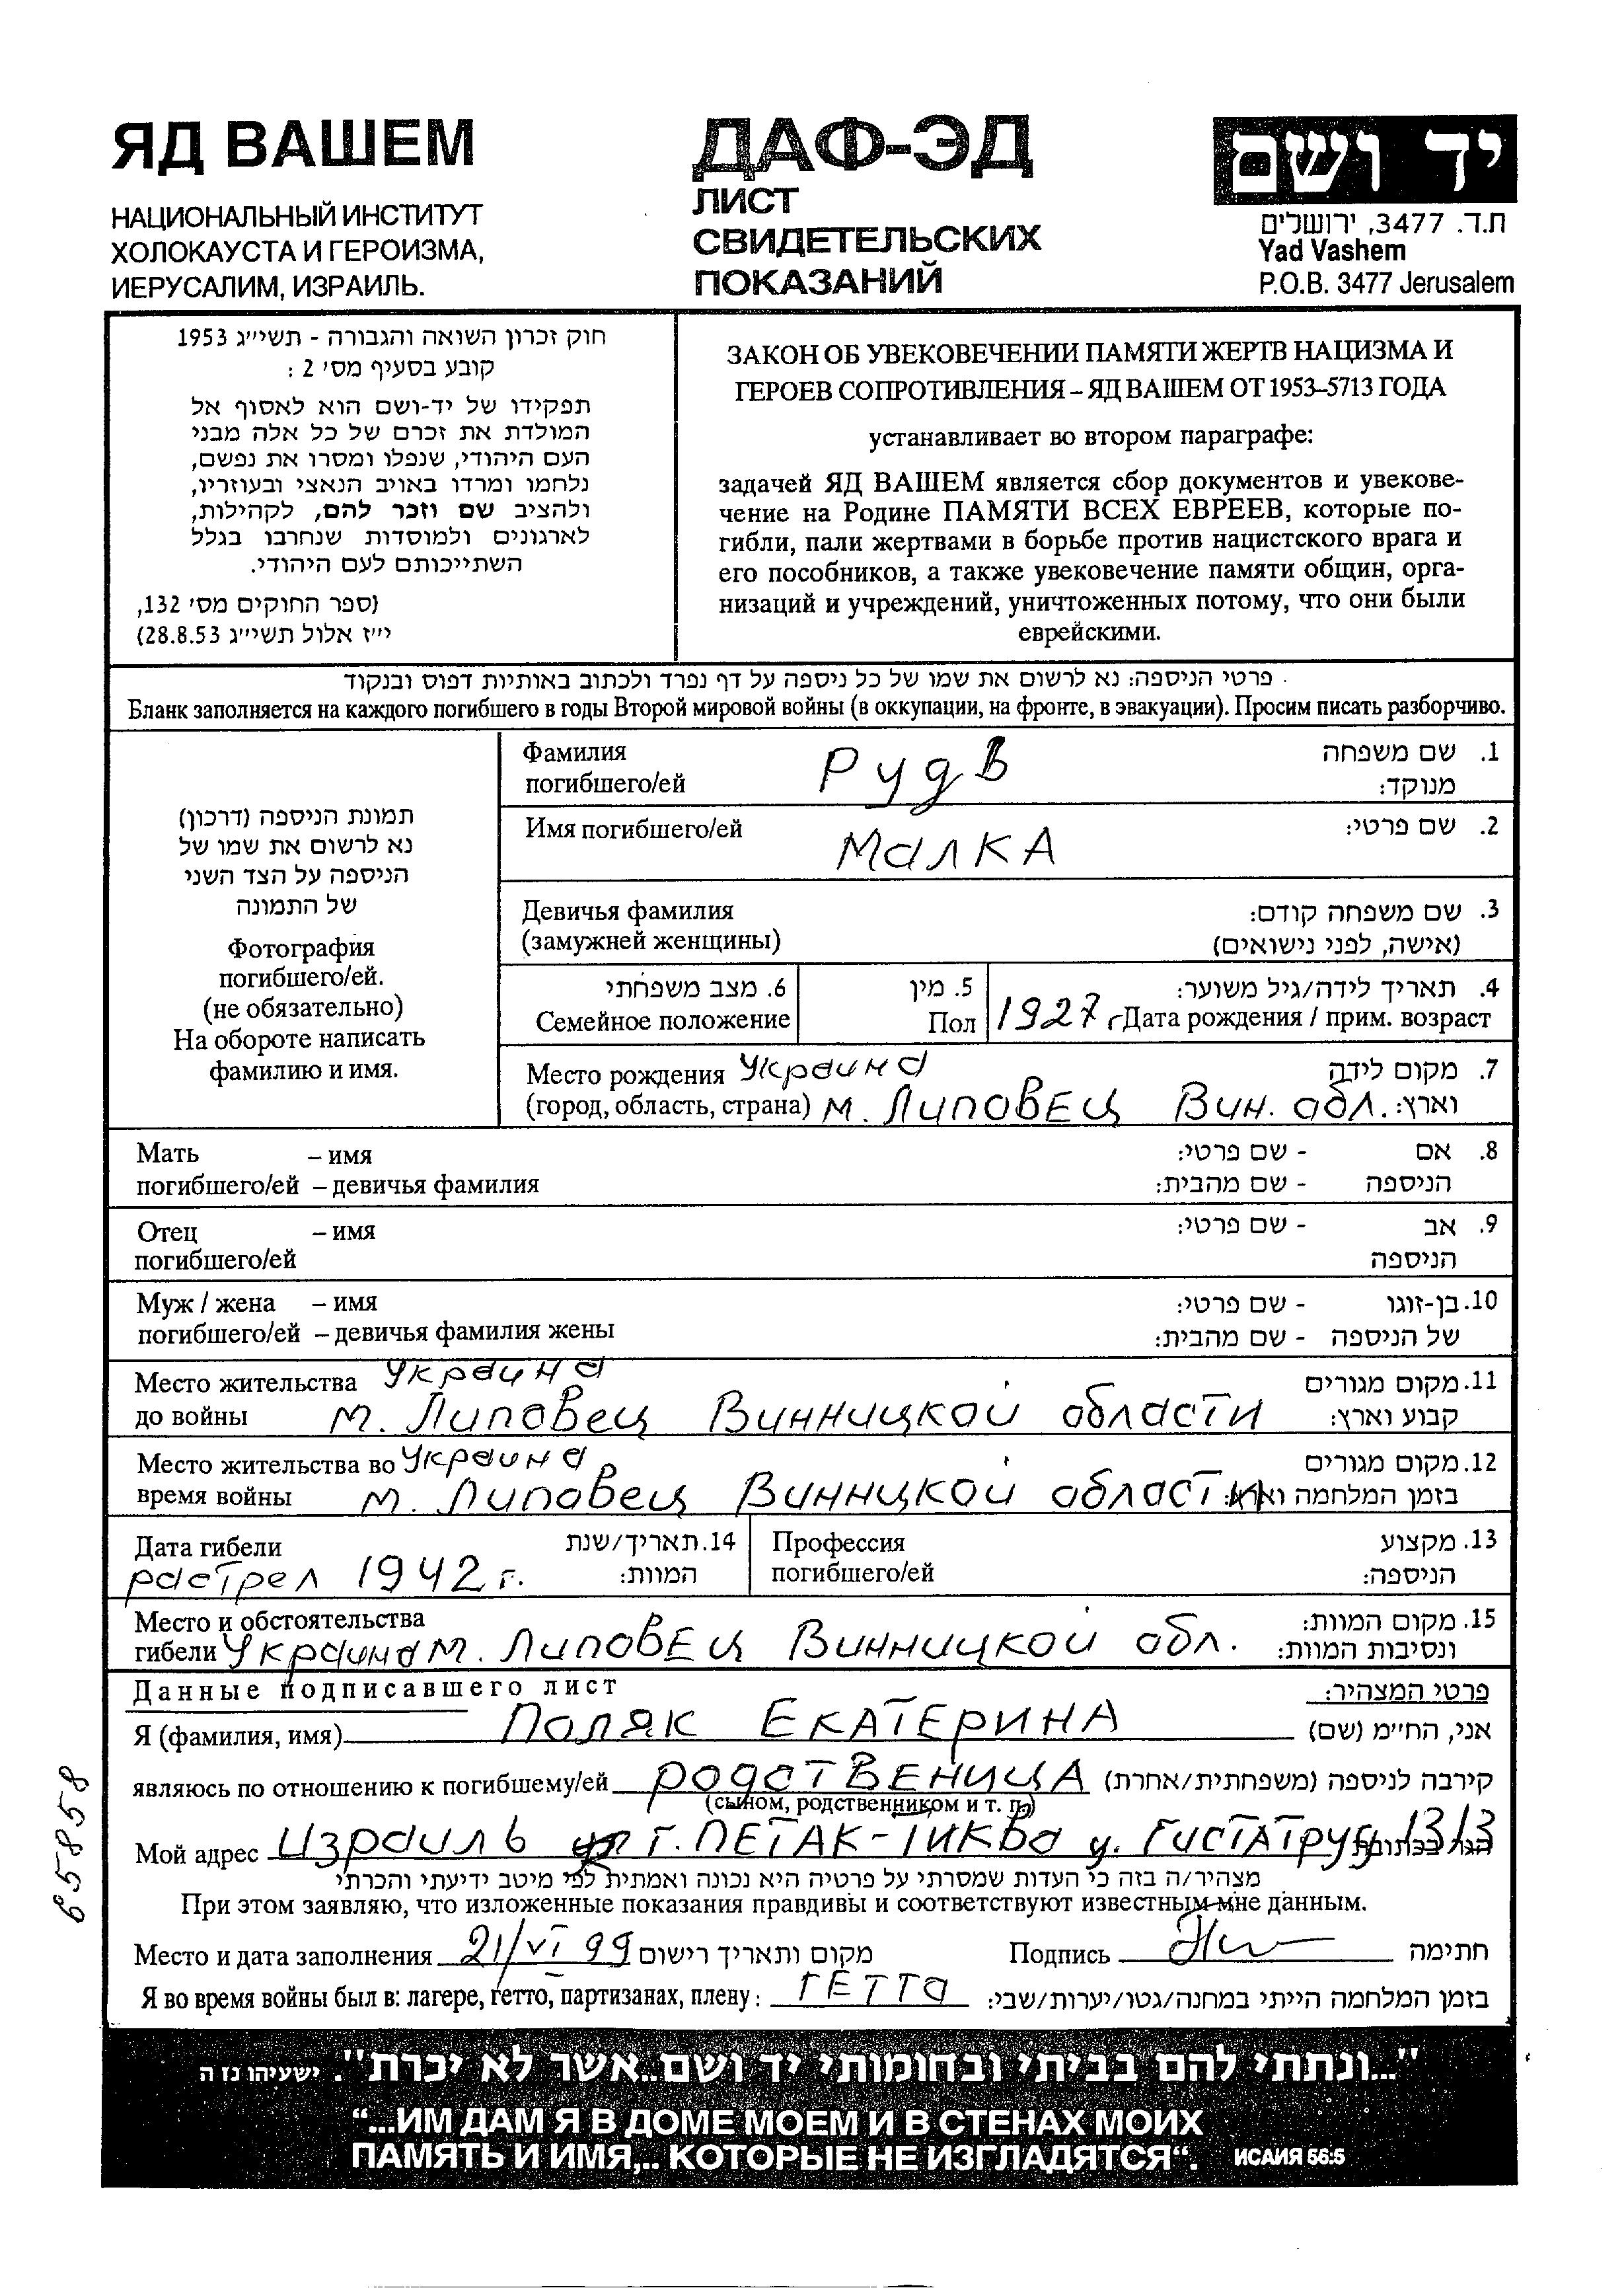 ЯД ВАШЕМ
НАЦИОНАЛЬНЫЙ ИНСТИТУТ
ХОЛОКАУСТА И ГЕРОИЗМА,
ИЕРУСАЛИМ, ИЗРАИЛЬ.
ДАФ-ЭД
ЛИСТ
СВИДЕТЕЛЬСКИХ
ПОКАЗАНИЙ
יד ושם
ת.ד. 3477, ירושלים
Yad Vashem
P.O.B. 3477 Jerusalem
חוק זכרון השואה והגבורה - תשי״ג 1953
קובע בסעיף מס׳ 2 :
תפקידו של יד-ושם הוא לאסוף אל
המולדת את זכרם של כל אלה מבני
העם היהודי, שנפלו ומסרו את נפשם,
נלחמו ומרדו באויב הנאצי ובעוזריו,
ולהציב שם וזכר להם, לקהילות,
לארגונים ולמוסדות שנחרבו בגלל
השתייכותם לעם היהודי.
(ספר החוקים מס׳ 132,
י״ז אלול תשי״ג 28.8.53)
ЗАКОН ОБ УВЕКОВЕЧЕНИИ ПАМЯТИ ЖЕРТВ НАЦИЗМА И
ГЕРОЕВ СОПРОТИВЛЕНИЯ – ЯД ВАШЕМ ОТ 1953–5713 ГОДА
устанавливает во втором параграфе:
задачей ЯД ВАШЕМ является сбор документов и увекове-
чение на Родине ПАМЯТИ ВСЕХ ЕВРЕЕВ, которые по-
гибли, пали жертвами в борьбе против нацистского врага и
его пособников, а также увековечение памяти общин, орга-
низаций и учреждений, уничтоженных потому, что они были
еврейскими.
פרטי הניספה: נא לרשום את שמו של כל ניספה על דף נפרד ולכתוב באותיות דפוס ובנקוד
Бланк заполняется на каждого погибшего в годы Второй мировой войны (в оккупации, на фронте, в эвакуации). Просим писать разборчиво.
תמונת הניספה (דרכון)
נא לרשום את שמו של
הניספה על הצד השני
של התמונה
Фотография
погибшего/ей.
(не обязательно)
На обороте написать
фамилию и имя.
Фамилия РудВ 1. שם משפחה
погибшего/ей מנוקד:
Имя погибшего/ей МалКА 2. שם פרטי:
Девичья фамилия 3. שם משפחה קודם:
(замужней женщины) (אישה, לפני נישואים)
6. מצב משפחתי 5. מין 4. תאריך לידה/גיל משוער:
Семейное положение Пол 1927 г Дата рождения / прим. возраст
Место рождения Украина 7. מקום לידה
(город, область, страна) м. ЛиповЕЦ Вин. обл. וארץ:
Мать – имя 8. אם - שם פרטי:
погибшего/ей – девичья фамилия הניספה - שם מהבית:
Отец – имя 9. אב - שם פרטי:
погибшего/ей הניספה
Муж / жена – имя 10. בן-זוגו - שם פרטי:
погибшего/ей – девичья фамилия жены של הניספה - שם מהבית:
Место жительства Украина 11. מקום מגורים
до войны м. Липовец Винницкой области קבוע וארץ:
Место жительства во Украина 12. מקום מגורים
время войны м. Липовец Винницкой области בזמן המלחמה וארץ:
Дата гибели 14. תאריך/שנת Профессия 13. מקצוע
растрел 1942 г. המוות: погибшего/ей הניספה:
Место и обстоятельства 15. מקום המוות:
гибели Украина м. ЛиповЕЦ Винницкой обл. ונסיבות המוות:
Данные подписавшего лист פרטי המצהיר:
Я (фамилия, имя) Поляк ЕКАТЕРИНА אני, החי״מ (שם)
являюсь по отношению к погибшему/ей родстВЕНИЦА קירבה לניספה (משפחתית/אחרת)
(сыном, родственником и т. п.)
Мой адрес Израиль г. ПЕТАК-ТИКВа у. ГистАтруд 13/3 הגר בכתובת
מצהיר/ה בזה כי העדות שמסרתי על פרטיה היא נכונה ואמתית לפי מיטב ידיעתי והכרתי
При этом заявляю, что изложенные показания правдивы и соответствуют известным мне данным.
Место и дата заполнения 21/VI 99 מקום ותאריך רישום Подпись חתימה
Я во время войны был в: лагере, гетто, партизанах, плену: ГЕТТО בזמן המלחמה הייתי במחנה/גטו/יערות/שבי:
65858
"...ונתתי להם בביתי ובחומותי יד ושם..אשר לא יכרת". ישעיהו נו ה
“...ИМ ДАМ Я В ДОМЕ МОЕМ И В СТЕНАХ МОИХ
ПАМЯТЬ И ИМЯ,.. КОТОРЫЕ НЕ ИЗГЛАДЯТСЯ“. ИСАИЯ 56:5